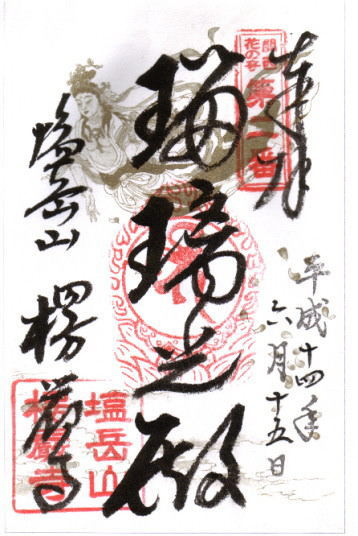 奉拝
関西
花の寺
第二番
平成十四年
六月十五日
瑠璃光殿
塩岳山 楞厳寺
塩岳山
楞厳寺